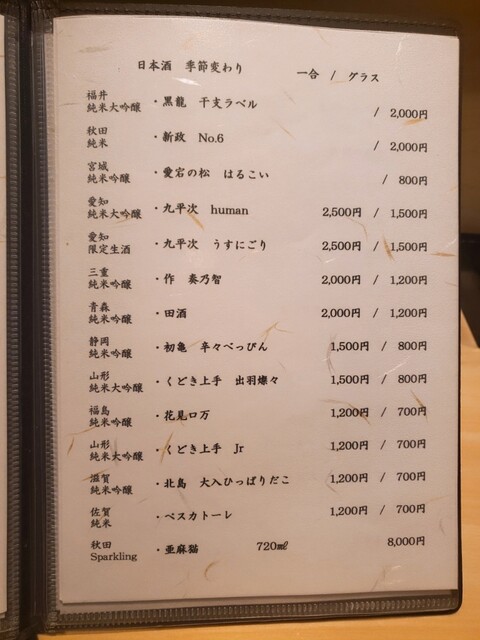 日本酒 季節変わり 一合 / グラス
福井
純米大吟醸 ・黒龍 干支ラベル / 2,000円
秋田
純米 ・新政 No.6 / 2,000円
宮城
純米吟醸 ・愛宕の松 はるこい / 800円
愛知
純米大吟醸 ・九平次 human 2,500円 / 1,500円
愛知
限定生酒 ・九平次 うすにごり 2,500円 / 1,500円
三重
純米吟醸 ・作 奏乃智 2,000円 / 1,200円
青森
純米吟醸 ・田酒 2,000円 / 1,200円
静岡
純米吟醸 ・初亀 辛々べっぴん 1,500円 / 800円
山形
純米大吟醸 ・くどき上手 出羽燦々 1,500円 / 800円
福島
純米吟醸 ・花見ロ万 1,200円 / 700円
山形
純米大吟醸 ・くどき上手 Jr 1,200円 / 700円
滋賀
純米吟醸 ・北島 大入ひっぱりだこ 1,200円 / 700円
佐賀
純米 ・ペスカトーレ 1,200円 / 700円
秋田
Sparkling ・亜麻猫 720㎖ 8,000円